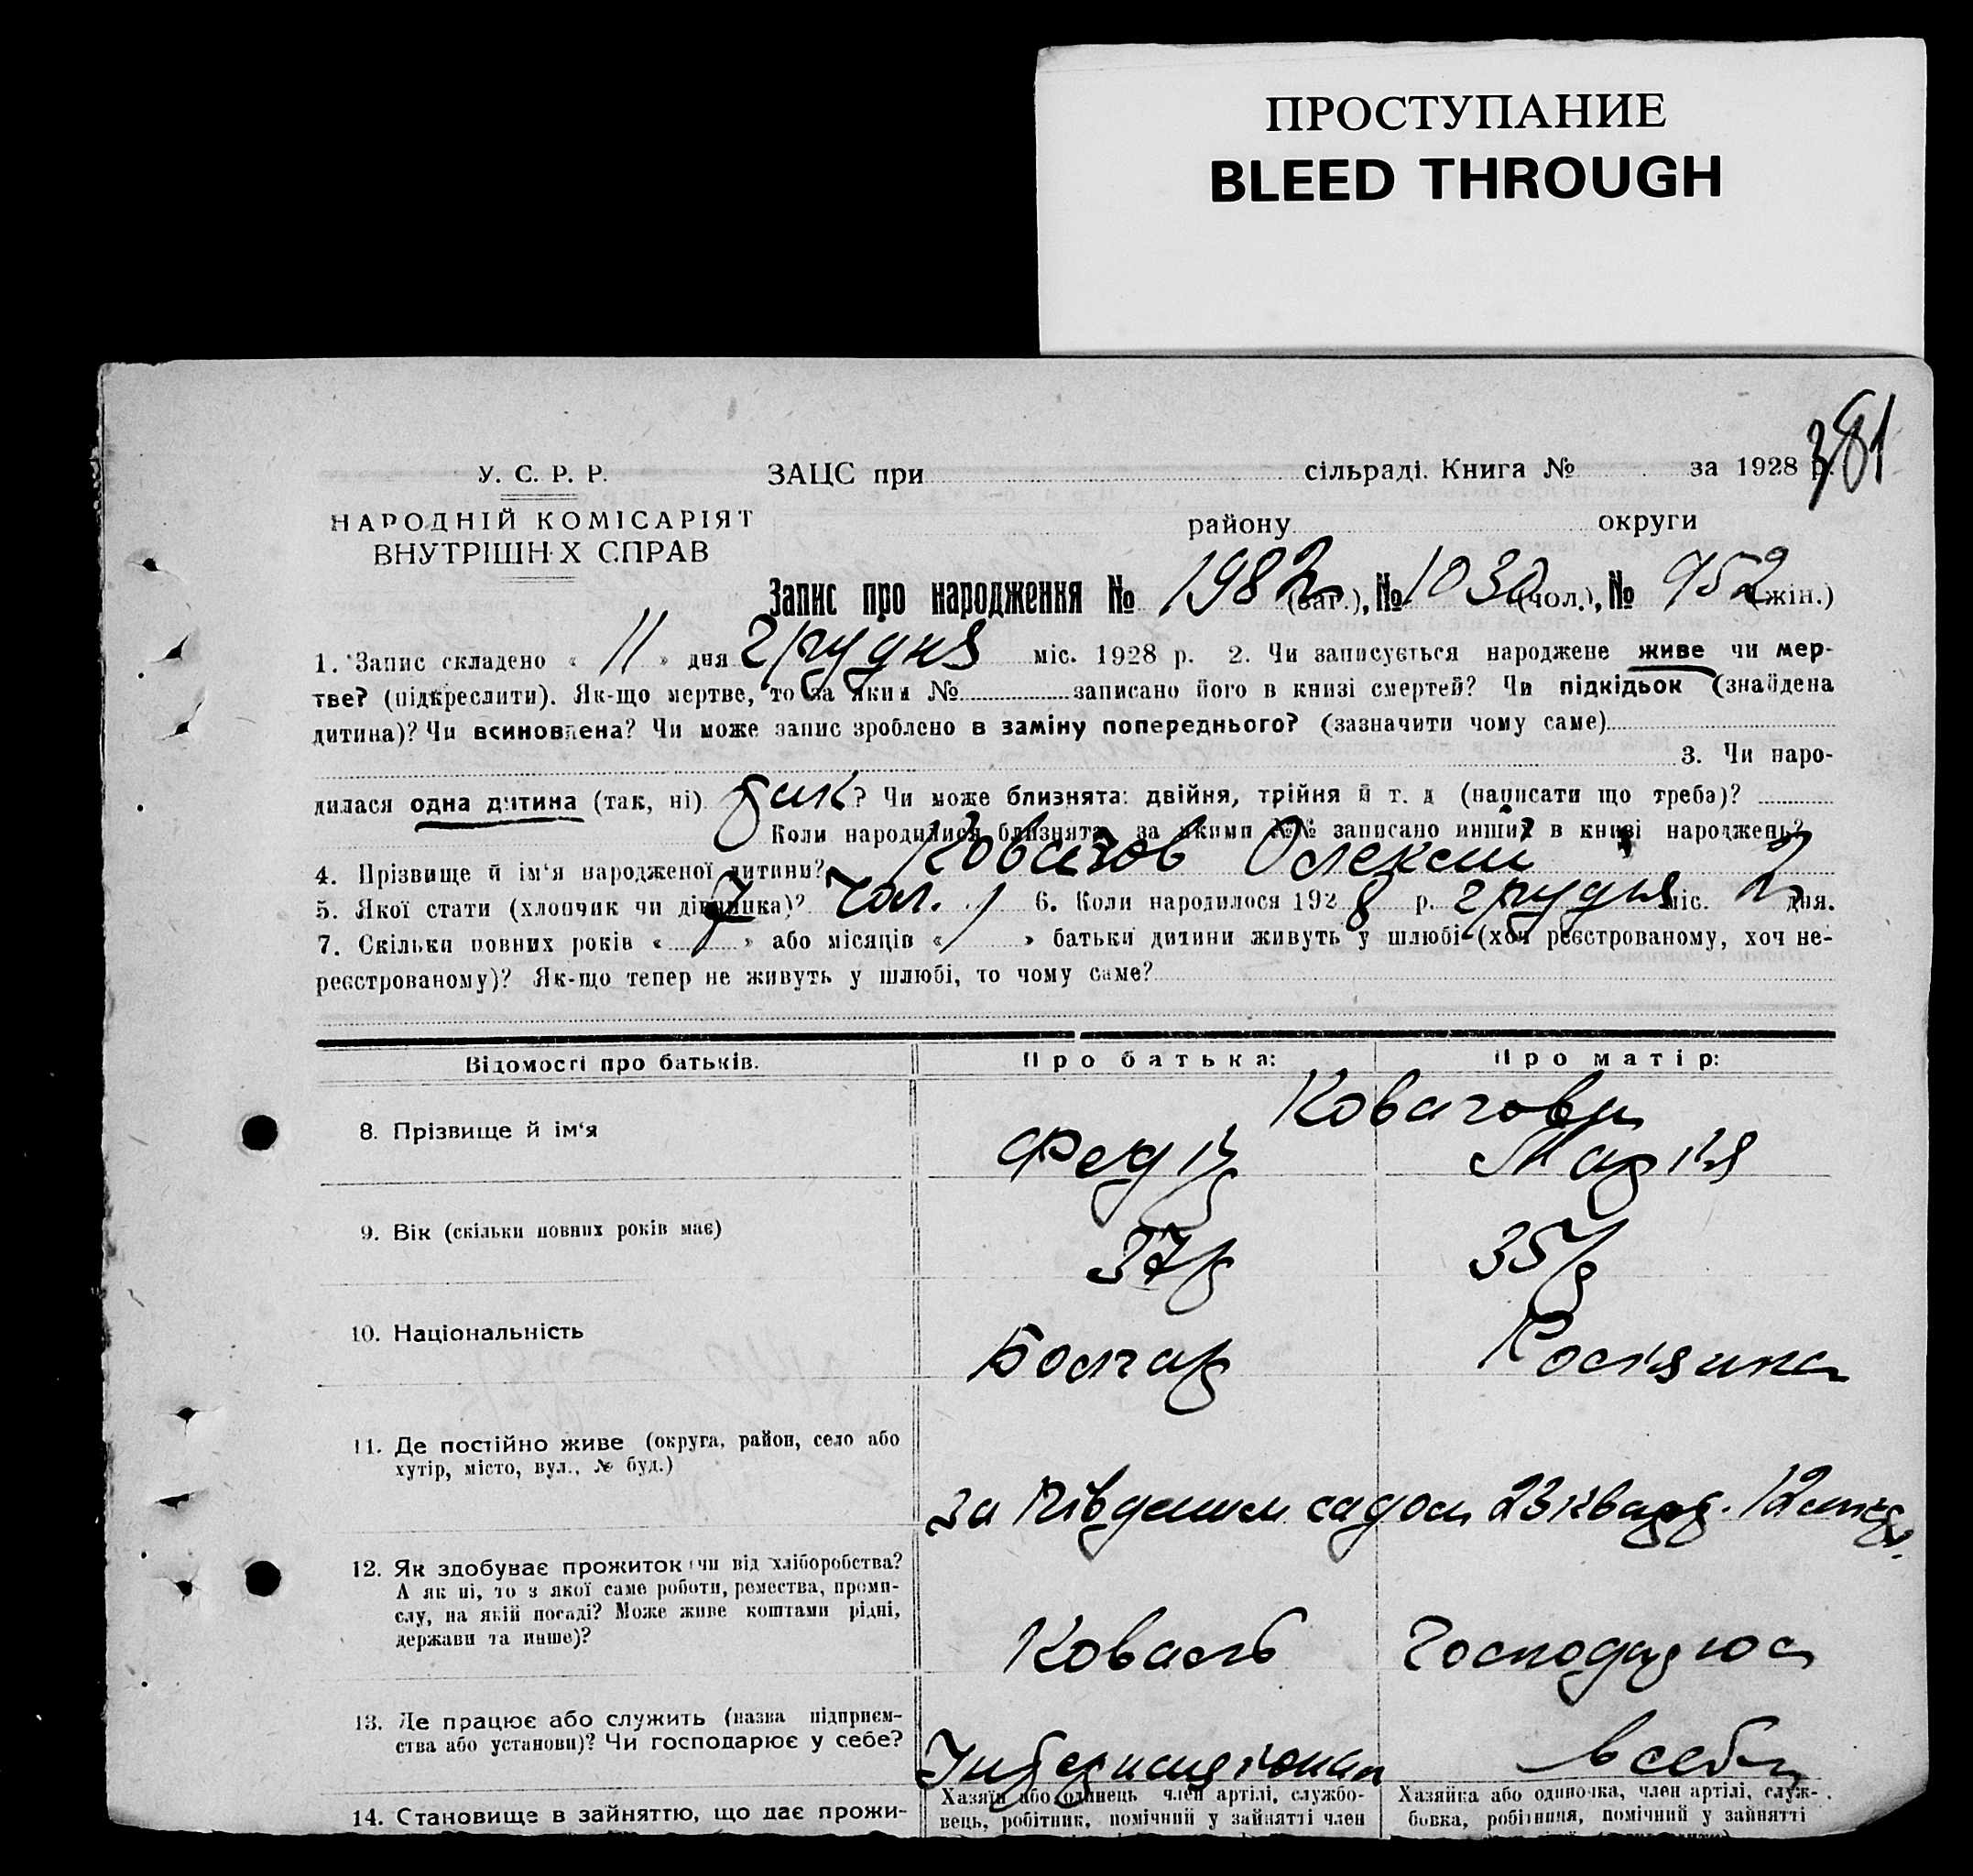 ПРОСТУПАНИЕ
BLEED THROUGH
381
У. С. Р. Р.
НАРОДНІЙ КОМІСАРІЯТ
ВНУТРІШН Х СПРАВ
ЗАЦС при сільраді. Книга № за 1928 р.
району округи
Запис про народження № 1982 (заг.), № 1030 (чол.), № 952 (жін.)
1. Запис складено « 11 » дня грудня міс. 1928 р. 2. Чи записується народжене живе чи мер-
тве? (підкреслити). Як-що мертве, то за яким № записано його в книзі смертей? Чи підкідьок (знайдена
дитина)? Чи всиновлена? Чи може запис зроблено в заміну попереднього? (зазначити чому саме)
3. Чи наро-
дилася одна дитина (так, ні) так? Чи може близнята: двійня, трійня й т. д (написати що треба)?
Коли народилися близнята, за якими №№ записано инших в книзі народжень?
4. Прізвище й ім'я народженої дитини? Ковачов Олексій
5. Якої стати (хлопчик чи дівчинка)? чол. 6. Коли народилося 1928 р. грудня міс. 2 дня.
7. Скільки повних років « 7 » або місяців « » батьки дитини живуть у шлюбі (хоч реєстрованому, хоч не-
реєстрованому)? Як-що тепер не живуть у шлюбі, то чому саме?
Відомості про батьків. Про батька: Про матір:
Ковачови
8. Прізвище й ім'я Федір Марія
9. Вік (скільки повних років має) 37 р 35 р
10. Національність Болгар Росіянка
11. Де постійно живе (округа, район, село або
хутір, місто, вул., № буд.)
за Південим садом 23 квард. 12
12. Як здобуває прожиток (чи від хліборобства?
А як ні, то з якої саме роботи, ремества, проми-
слу, на якій посаді? Може живе коштами рідні,
держави та инше)?
Коваль Господарюа
13. Де працює або служить (назва підприєм-
ства або установи)? Чи господарює у себе?
Інтернаціонал в себе
14. Становище в зайняттю, що дає прожи-
Хазяїн або одинець член артілі, службо-
вець, робітник, помічний у зайнятті член
Хазяйка або одиночка, член артілі, служ-
бовка, робітниця, помічний у зайнятті